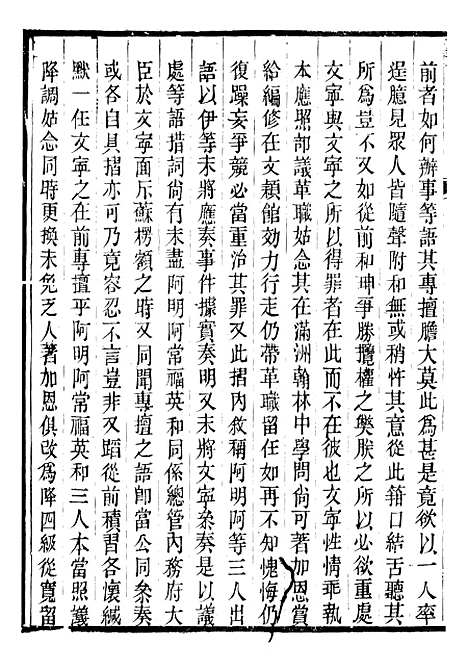 前者如何辦事等語其專擅膽大莫此為甚是竟欲以一人率
逞臆見眾人皆隨聲附和無或稍忤其意從此籍口結舌聽其
所為豈不又如從前和珅爭勝攬權之獘朕之所以必欲重處
文寧與文寧之所以得罪者在此而不在彼也文寧性情乖執
本應照部議革職姑念其在滿洲翰林中學問尙可著加恩賞
給編修在文穎館効力行走仍帶革職留任如再不知愧悔仍
復躁妄爭競必當重治其罪又此摺內敘稱阿明阿等三人出
語以伊等未將應奏事件據實奏明又未將文寧叅奏是以議
處等語措詞尙有未盡阿明阿常福英和同係總管內務府大
臣於文寧面斥蘇楞額之時又同聞專擅之語卽當公同叅奏
或各自具摺亦可乃竟容忍不言豈非又蹈從前積習各懷緘
默一任文寧之在前專擅乎阿明阿常福英和三人本當照議
降調姑念同時更換未免乏人著加恩俱改為降四級從寬留